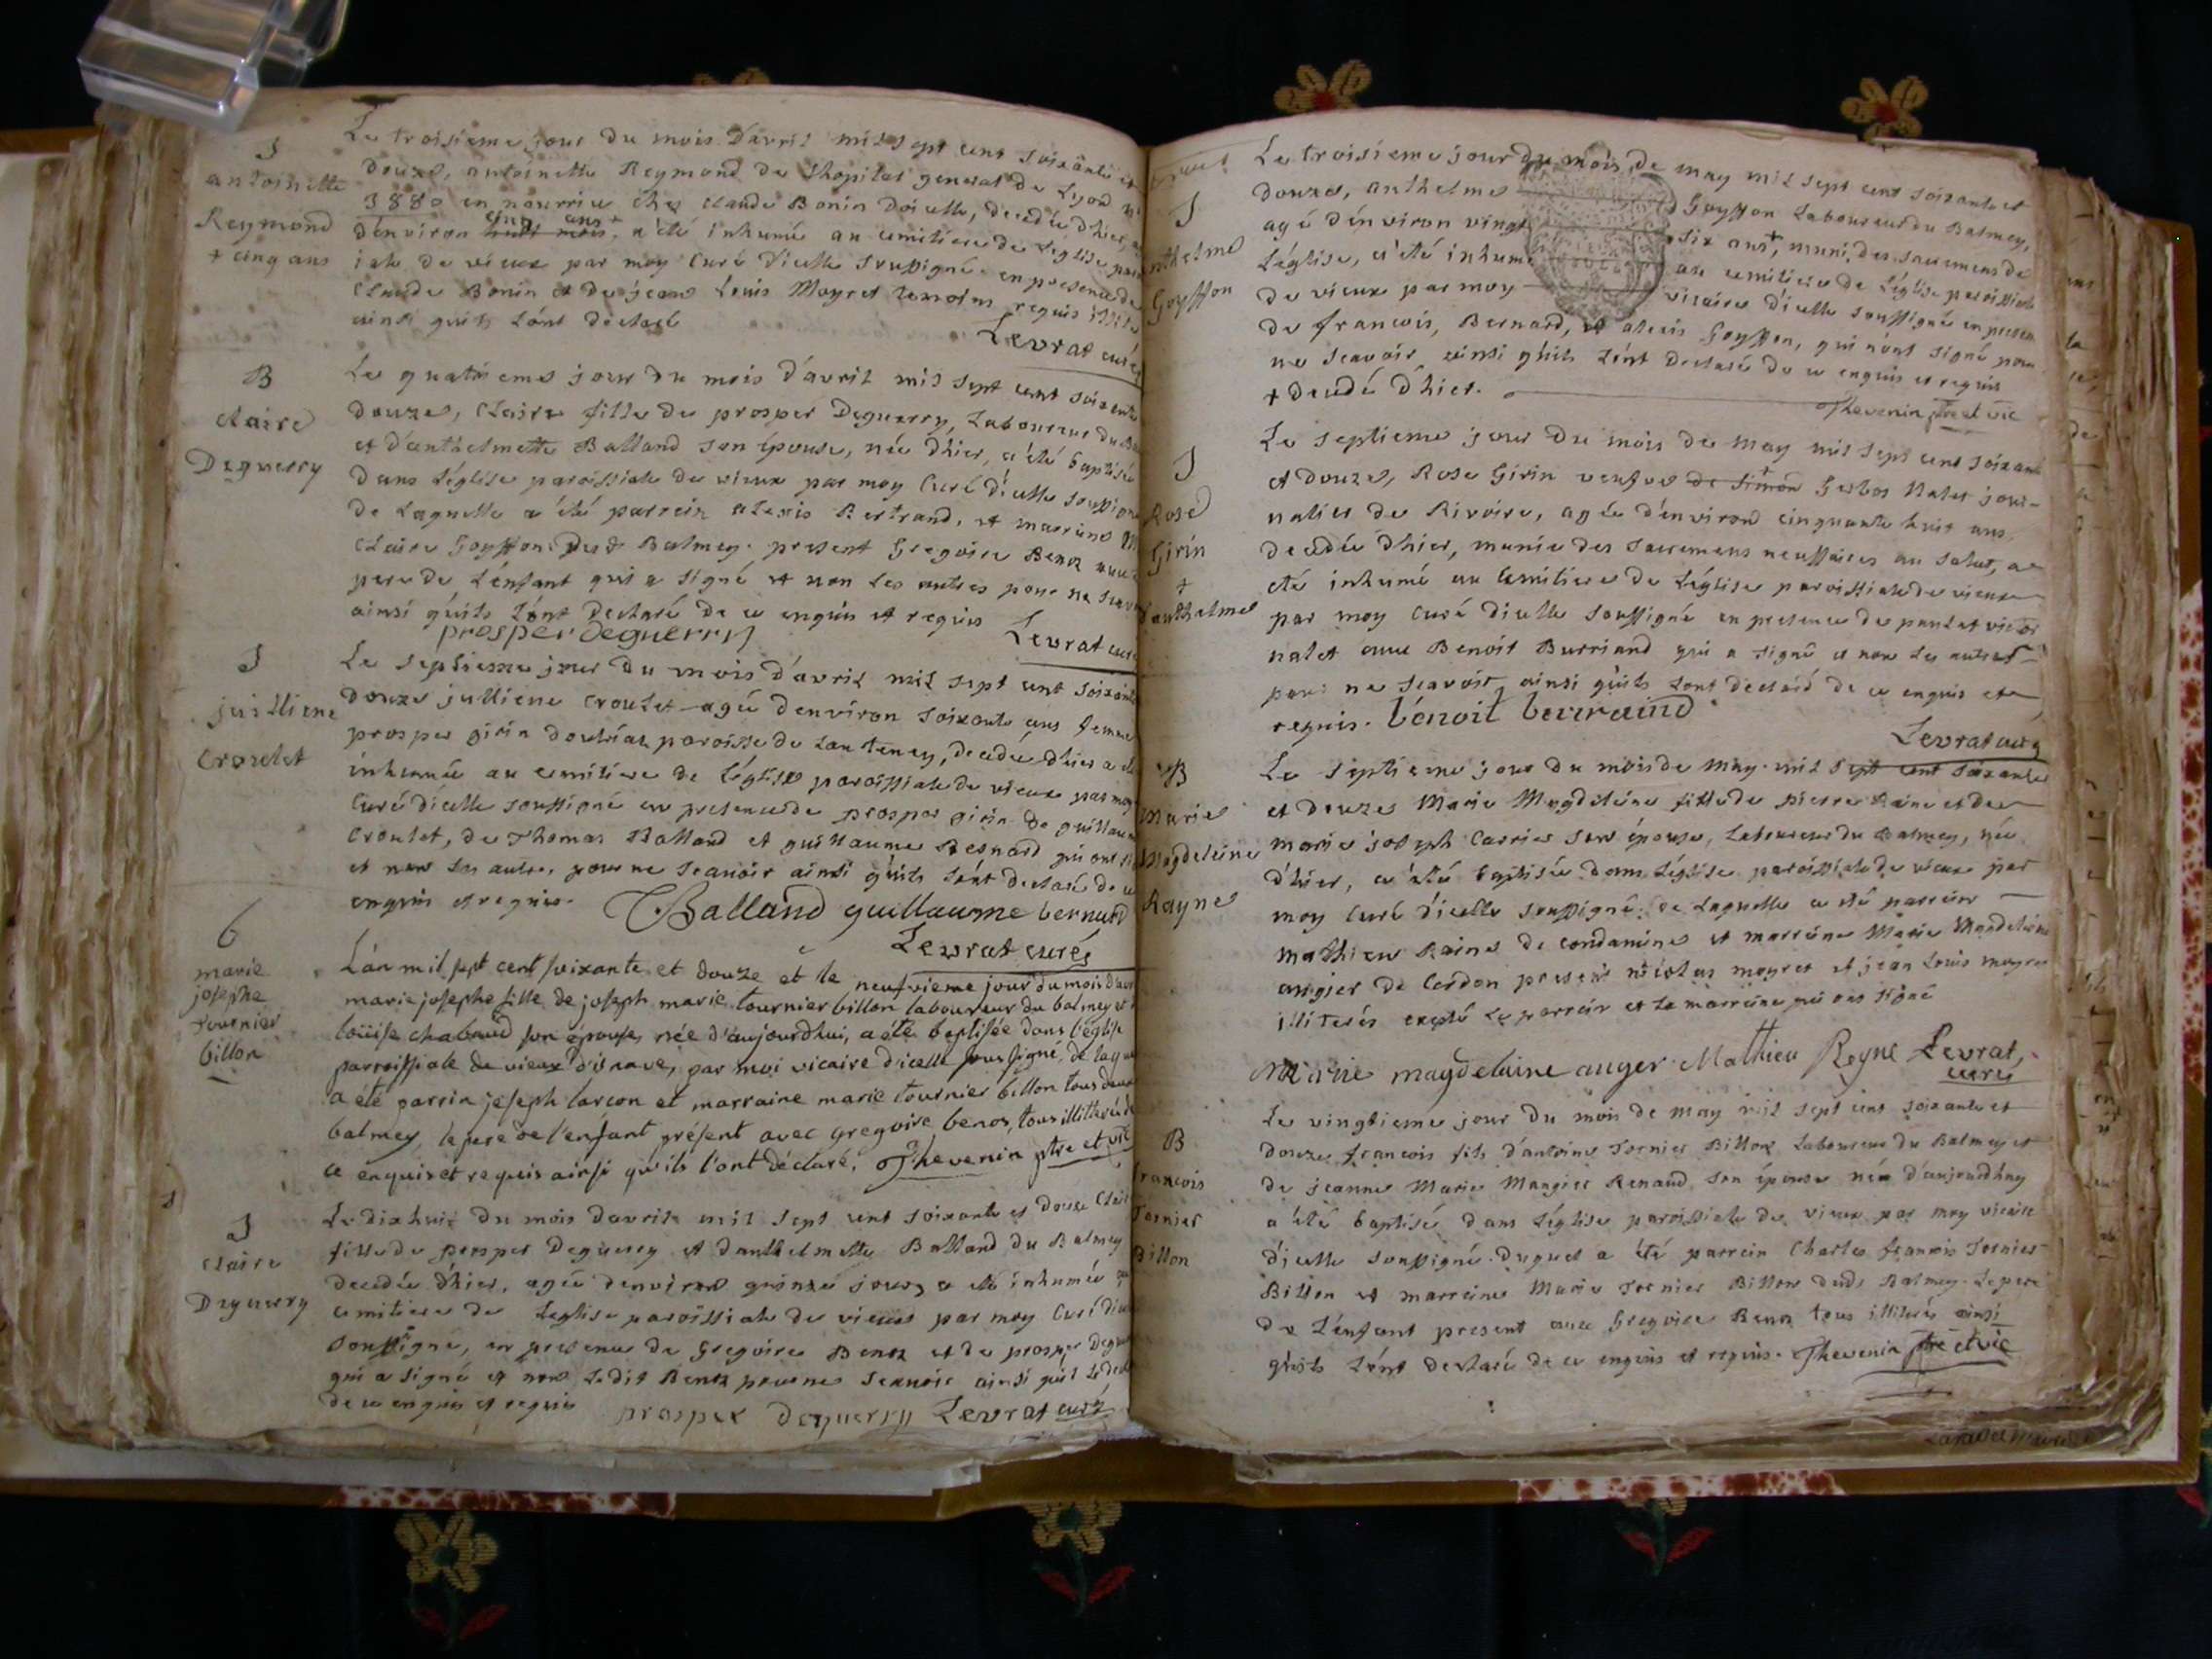 S
antoinette
Reymond
+ cinq ans
Le troisieme jour du mois d'avril mil sept cent soixante et
douze, antoinette Reymond de l'hopital general de Lyon
3880 en nourrice chez claude Bonin d'oiselle, decedée d'hier,
d'environ cinq ans + a été inhumée au cemitiere de l'eglise paro
iale de vieux par moy Curé d'icelle soussigné en presence de
Claude Bonin et de jean Louis Mayret temoins requis illite
ainsi qu'ils l'ont declaré
Levrat curé
B
claire
Deguerry
Le quatrieme jour du mois d'avril mil sept cent soixante
douze, Claire fille de prosper Deguerry, Laboureur du Ba
et d'anthelmette Balland son épouse, née d'hier, a été baptisée
dans l'église paroissiale de vieux par moy Curé d'icelle soussigné
de Laquelle a été parrein alexis Bertrand, et marreine
Claire Goyffon dudt Balmey. present Gregoire Benoz avec
pere de L'enfant qui a signé et non Les autres pour ne scavoir
ainsi qu'ils L'ont Declaré de ce enquis et requis
prosper deguerry Levrat curé
S
juilliene
Croulet
Le septieme jour du mois d'avril mil sept cent soixante
douze julliene croulet agée d'environ soixante ans femme
prosper girin paroisse de Lantenay, decedée d'hier a été
inhumée au cemitiere de l'église paroissiale de vieux par moy
Curé d'icelle soussigné en presence de prosper girin de guillaume
Croulet, de Thomas Balland et guillaume Bernard qui ont
et non les autres pour ne scavoir ainsi qu'ils l'ont declaré de ce
enquis et requis. Balland guillaume bernard
Levrat curé
6
marie
josephe
tournier
billon
L'an mil sept cent soixante et douze et le neufvieme jour du mois d'avr
marie josephe fille de joseph marie tournier billon laboureur du balmey et
loüise chabaud son épouse, née d'aujourdhui, a été baptisée dans l'église
parroissiale de vieux d'isnave, par moi vicaire d'icelle soussigné, de laque
a été parrin joseph larcon et marraine marie tournier billon tous deux
balmey, le pere de l'enfant présent avec gregoire benos, tous illitterés de
ce enquis et requis ainsi qu'ils l'ont déclaré. Thevenin ptre et vic
S
Claire
Deguerry
Le dixhuit du mois d'avril mil sept cent soixante et douze Claire
fille de prosper Deguerry et d'anthelmette Balland du Balmey
decedée d'hier, agée d'environ quinze jours a été inhumée au
cemitiere de Leglise paroissiale de vieux par moy Curé d'icelle
soussigné, en presence de Gregoire Benoz et de prosper Degu
qui a signé et non Ledit Benoz pour ne scavoir ainsi qu'il l'a decl
de ce enquis et requis prosper deguerry Levrat curé
S
nthelme
Goyffon
Le troisieme jour du mois de may mil sept cent soixante et
douze, anthelme Goyffon Laboureur du Balmey,
agé d'environ vingt six ans +, muni des sacremens de
L'église, a été inhumé au cemitiere de L'église paroissiale
de vieux par moy vicaire d'icelle soussigné en presen
de francois, Bernard, et alexis Goyffon, qui n'ont signé pour
ne scavoir, ainsi qu'ils L'ont declaré de ce enquis et requis
+ decedé d'hier.
Thevenin ptre et vic
S
Rose
Girin
+
d'anthelme
Le septieme jour du mois de may mil sept cent soixante
et douze, Rose Girin veufve de simon + Gerbos Nalet jour-
nalier de Rivoire, agée d'environ cinquante huit ans,
decedée d'hier, munie des sacremens necessaires au salut, a
eté inhumé au Cemitiere de L'église paroissiale de vieux
par moy Curé d'icelle soussigné en presence de paul et victor
nalet avec Benoit Burriand qui a signé et non Les autres
pour ne scavoir, ainsi qu'ils L'ont declaré de ce enquis et
requis. benoit berraind
Levrat curé
B
Marie
Magdeleine
Rayne
Le septieme jour du mois de may mil sept cent soixante
et douze Marie Magdeleine fille de pierre Raine et de
marie joseph Carrier son épouse, Laboureur du Balmey, née
d'hier, a été baptisée dans L'église paroissiale de vieux par
moy Curé d'icelle soussigné. de Laquelle a été parrein
Mathieu Raine de condamine et marreine Marie Magdeleine
augier de Cerdon presens nicolas mayret et jean Louis mayret
illiterés excepté Le parrein et La marreine qui ont signé
Marie magdelaine auger Mathieu Reyne Levrat,
curé
B
francois
Tornier
Billon
Le vingtieme jour du mois de may mil sept cent soixante et
douze francois fils d'antoine Tornier Billon Laboureur du Balmey et
de jeanne Marie Mangier Renaud son épouse née d'aujourdhuy
a été baptisé dans L'église paroissiale de vieux par moy vicaire
d'icelle soussigné. Duquel a été parrein Charles francois Tornier
Billon et marreine Marie Tornier Billon dudt Balmey. Le pere
de L'enfant present avec Gregoire Benoz tous illiterés ainsi
qu'ils L'ont declaré de ce enquis et requis. Thevenin ptre et vic